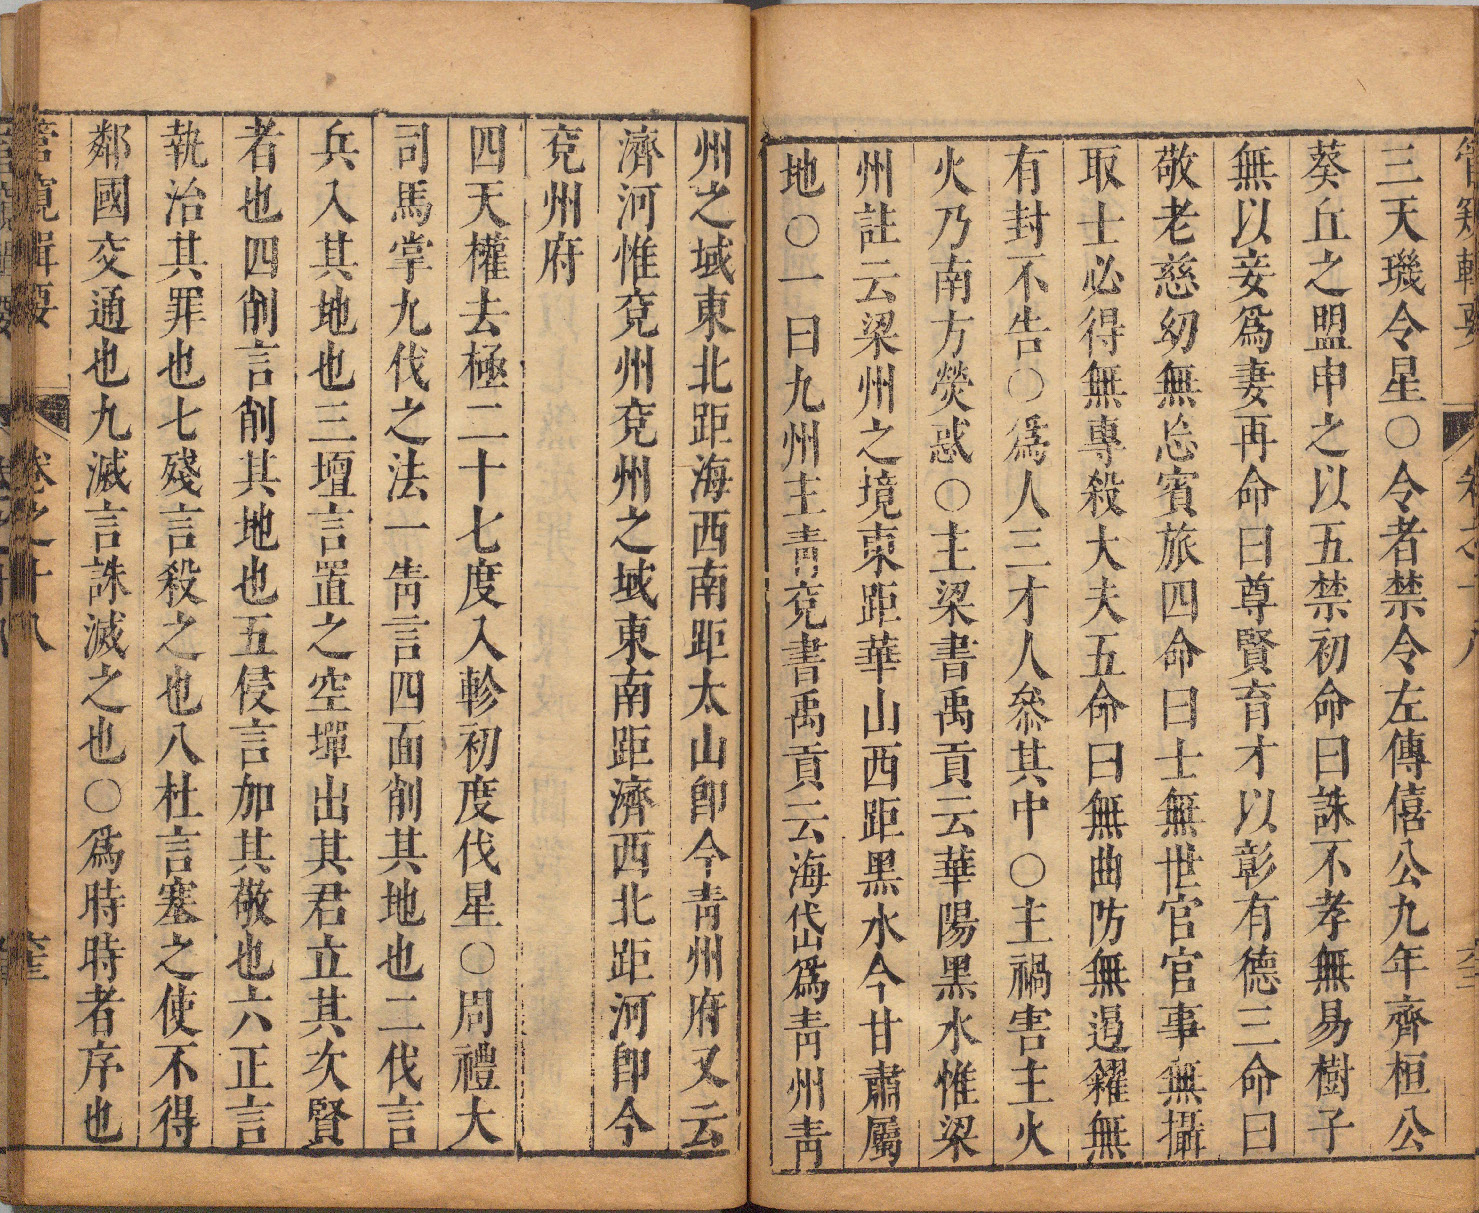 管窺輯要 卷之十八
三天璣令星○令者禁令左傳僖公九年齊桓公
葵丘之盟申之以五禁初命曰誅不孝無易樹子
無以妾爲妻再命曰尊賢育才以彰有德三命曰
敬老慈幼無忘賓旅四命曰士無世官官事無攝
取士必得無專殺大夫五命曰無曲防無遏糴無
有封不告○爲人三才人叅其中○主禍害主火
火乃南方熒惑○主梁書禹貢云華陽黑水惟梁
州註云梁州之境東距華山西距黑水今甘肅屬
地○一曰九州主靑兗書禹貢云海岱爲靑州靑
州之域東北距海西南距太山卽今靑州府又云
濟河惟兗州兗州之域東南距濟西北距河卽今
兗州府
四天權去極二十七度入軫初度伐星○周禮大
司馬掌九伐之法一眚言四面削其地也二伐言
兵入其地也三壇言置之空墠出其君立其次賢
者也四削言削其地也五侵言加其敬也六正言
執治其罪也七殘言殺之也八杜言塞之使不得
鄰國交通也九滅言誅滅之也○爲時時者序也
管窺輯要 卷之十八